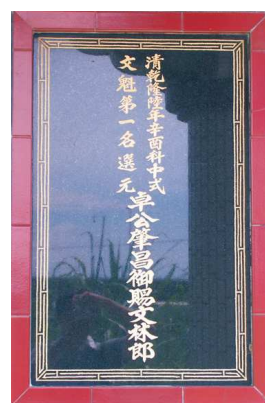 清乾隆陸年辛酉科中式
文魁第一名選元
卓公肇昌御賜文林郎